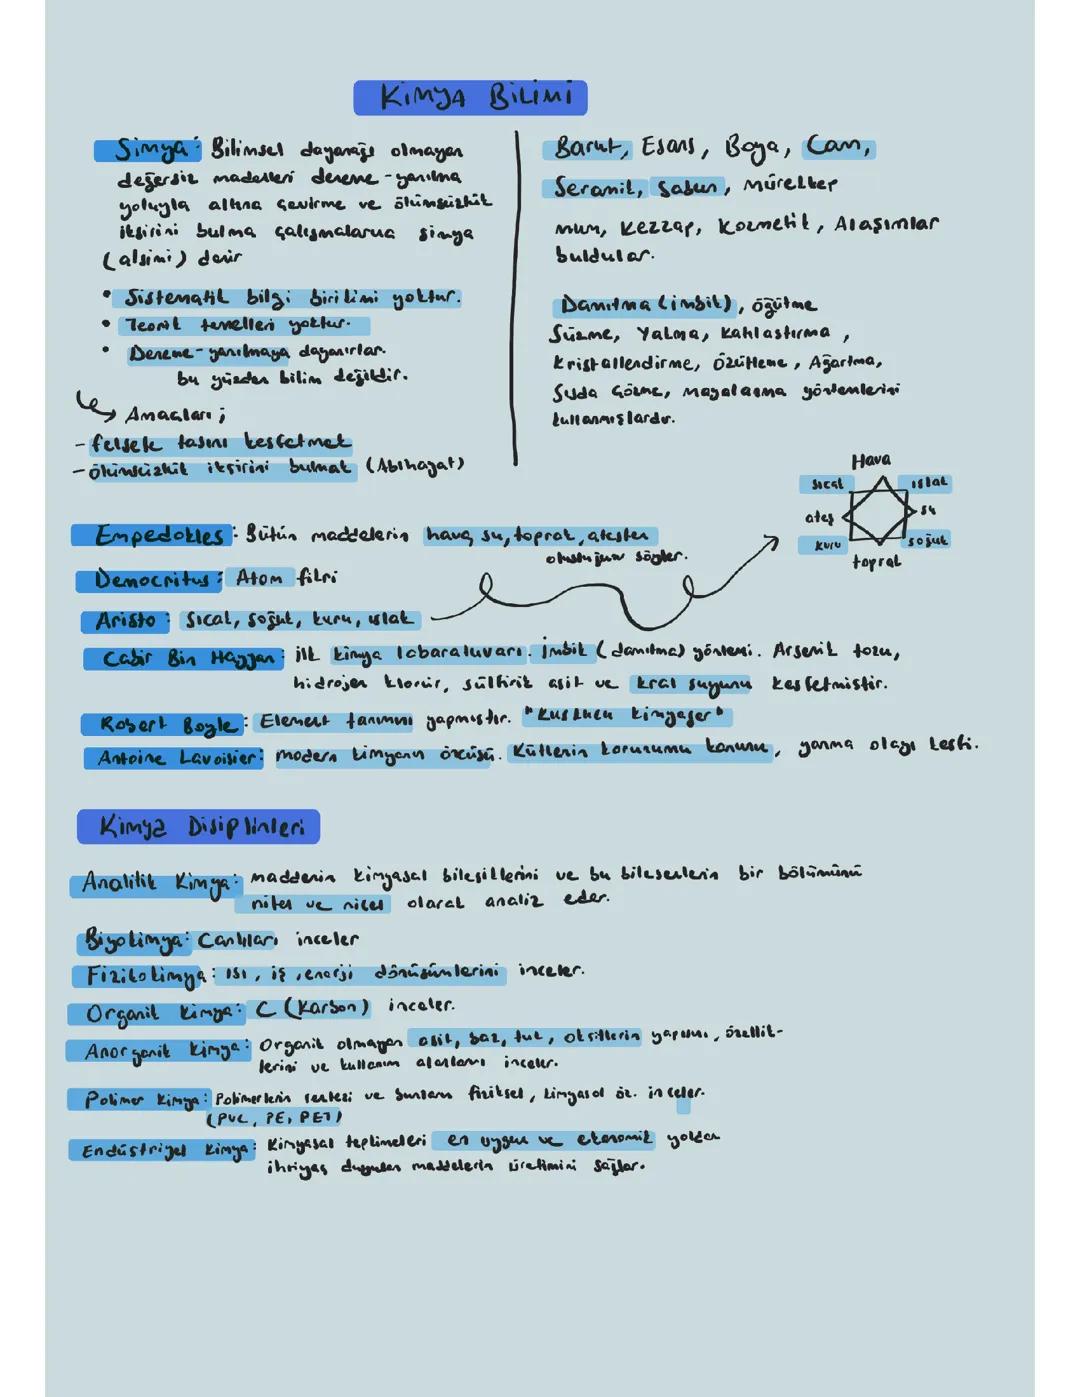 Kimya Bilimi
Simya: Bilimsel dayanağı olmayan
değersiz madelleri dereme-yanılma
yoluyla altına çevirme ve ölümsüzlük
iksirini bulma çalışmalarına simya
(alşimi) denir
• Sistematik bilgi birikimi yoktur.
• Teorik temelleri yoktur.
• Deneme-yanılmaya dayanırlar.
bu yüzden bilim değildir.
Amaçları;
- felsefe taşını keşfetmek
- ölümsüzlük iksirini bulmak (Abıhayat)
Barut, Esans, Boya, Cam,
Seramik, Sabun, mürekkep
mum, Kezzap, Kozmetik, Alaşımlar
buldular.
Damıtma (imbik), öğütme
Süzme, Yakma, Kahlastırma,
Kristallendirme, Özütleme, Ağartma,
Suda Çözme, mayalanma yöntemlerini
kullanmışlardır.
Hava
sıcak ıslak
ateş su
kuru soğuk
toprak
Empedokles: Bütün maddelerin hava, su, toprak, ateşten
oluştuğunu söyler.
Democritus: Atom fikri
Aristo: Sıcak, Soğuk, kuru, ıslak
Cabir Bin Hayyan: ilk kimya labaratuvarı. İmbik (damıtma) yöntemi. Arsenik tozu,
hidrojen klorür, sülfirik asit ve kral suyunu keşfetmiştir.
Robert Boyle: Element tanımını yapmıştır. "Kuşkucu kimyager"
Antoine Lavoisier: modern kimyanın öncüsü. Kütlenin korunumu kanunu, yanma olayı keşfi.
Kimya Disiplinleri
Analitik Kimya: maddenin kimyasal bileşiklerini ve bu bileşenlerin bir bölümünü
nitel ve nicel olarak analiz eder.
Biyokimya: Canlıları inceler
Fizikokimya: ısı, iş, enerji dönüşümlerini inceler.
Organik kimya: C (Karbon) inceler.
Anorganik kimya: Organik olmayan asit, baz, tuz, oksitlerin yapımı, özellik-
lerini ve kullanım alanlarını inceler.
Polimer kimya: Polimerlerin sentezi ve bunların fiziksel, kimyasal öz. inceler.
(PVC, PE, PET)
Endüstriyel kimya: Kimyasal tepkimeleri en uygun ve ekonomik yoldan
ihtiyaç duyulan maddelerin üretimini sağlar.